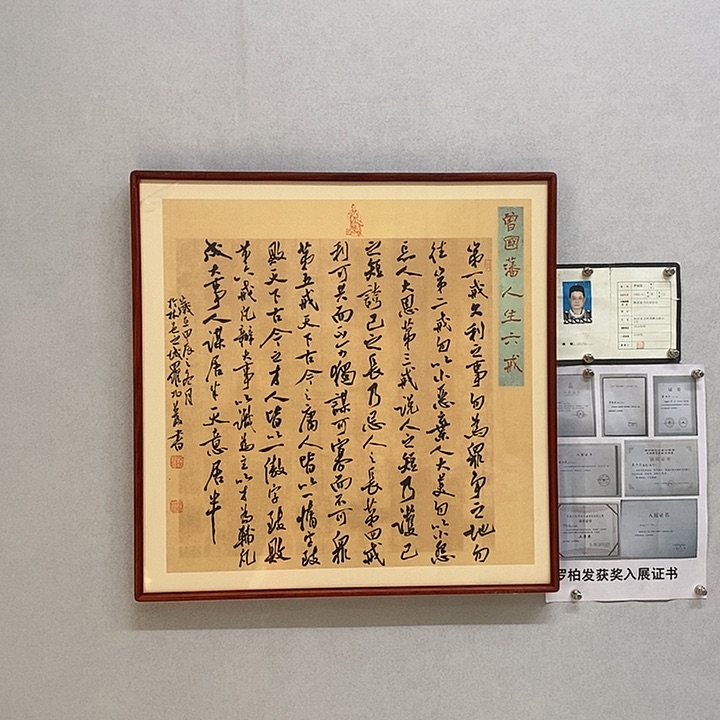 曾國藩人生六戒
第一戒久利之事勿為眾爭之地勿
往第二戒勿以小惡棄人大美勿以小怨
忘人大恩第三戒說人之短乃護己
之短誇己之長乃忌人之長第四戒
利可共而不可獨謀可寡而不可眾
第五戒天下古今之庸人皆以一惰字致
敗天下古今之才人皆以一傲字致敗
第六戒凡辦大事以識為主以才為輔凡
成大事人謀居半天意居半
歲在甲辰之月
於林邑之城羅柏發書
罗柏发获奖入展证书